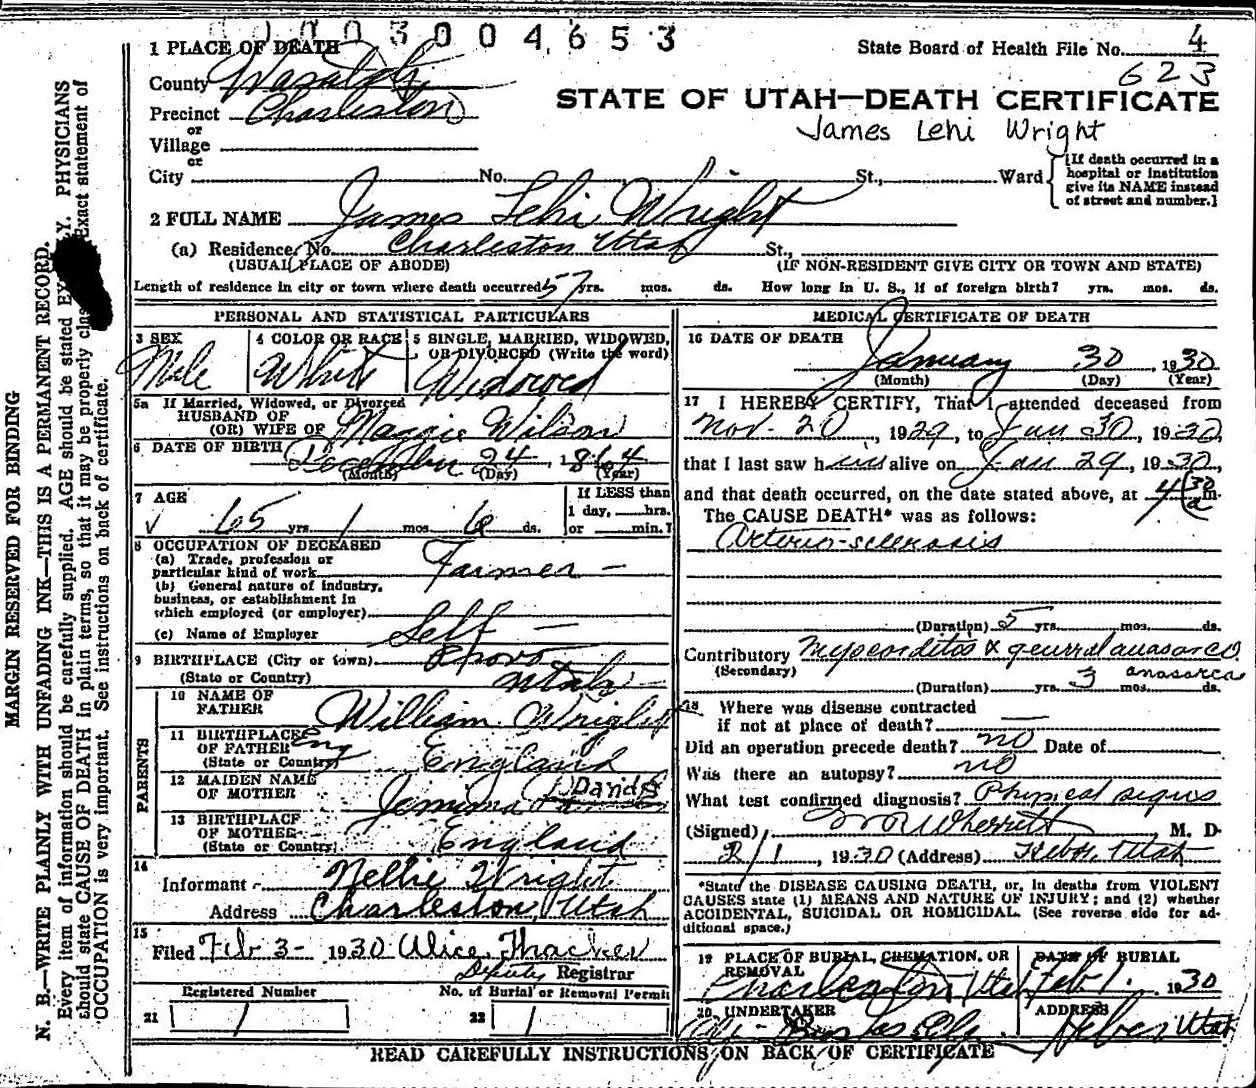 0003004653
State Board of Health File No. 4
623
1 PLACE OF DEATH
County Wasatch
STATE OF UTAH—DEATH CERTIFICATE
Precinct Charleston
James Lehi Wright
or
Village
or
City No. St., Ward
[If death occurred in a hospital or institution give its NAME instead of street and number.]
2 FULL NAME James Lehi Wright
(a) Residence, No. Charleston Utah St.,
(USUAL PLACE OF ABODE) (IF NON-RESIDENT GIVE CITY OR TOWN AND STATE)
Length of residence in city or town where death occurred 57 yrs. mos. ds. How long in U. S., if of foreign birth? yrs. mos. ds.
PERSONAL AND STATISTICAL PARTICULARS
3 SEX
Male
4 COLOR OR RACE
White
5 SINGLE, MARRIED, WIDOWED, OR DIVORCED (Write the word)
Widowed
5a If Married, Widowed, or Divorced
HUSBAND OF
(OR) WIFE OF Maggie Wilson
6 DATE OF BIRTH December 24, 1864
(Month) (Day) (Year)
7 AGE
65 yrs. 1 mos. 6 ds.
If LESS than
1 day, hrs.
or min.?
8 OCCUPATION OF DECEASED
(a) Trade, profession or
particular kind of work Farmer —
(b) General nature of industry,
business, or establishment in
which employed (or employer) Self —
(c) Name of Employer
9 BIRTHPLACE (City or town) Provo
(State or Country) Utah
PARENTS
10 NAME OF
FATHER William Wright
11 BIRTHPLACE
OF FATHER Eng
(State or Country) England
12 MAIDEN NAME
OF MOTHER Jemima Davids
13 BIRTHPLACE
OF MOTHER
(State or Country) England
14
Informant Nellie Wright
Address Charleston, Utah
15
Filed Feb 3- 1930 Alice Thacker
Deputy Registrar
Registered Number No. of Burial or Removal Permit
21 1 22 1
MEDICAL CERTIFICATE OF DEATH
16 DATE OF DEATH
January 30, 1930
(Month) (Day) (Year)
17 I HEREBY CERTIFY, That I attended deceased from
Nov. 20, 1929, to Jan 30, 1930,
that I last saw him alive on Jan 29, 1930,
and that death occurred, on the date stated above, at 4 30 a m.
The CAUSE DEATH* was as follows:
Arterio-sclerosis
(Duration) 5 yrs. mos. ds.
Contributory Myocarditis & general anasarca
(Secondary) anasarca
(Duration) yrs. 3 mos. ds.
18 Where was disease contracted
if not at place of death? —
Did an operation precede death? no Date of
Was there an autopsy? no
What test confirmed diagnosis? Physical signs
(Signed) Wherritt M. D.
2/1, 1930 (Address) Heber, Utah
*State the DISEASE CAUSING DEATH, or, in deaths from VIOLENT
CAUSES state (1) MEANS AND NATURE OF INJURY; and (2) whether
ACCIDENTAL, SUICIDAL OR HOMICIDAL. (See reverse side for ad-
ditional space.)
19 PLACE OF BURIAL, CREMATION, OR
REMOVAL
Charleston Utah
DATE OF BURIAL
Feb 1. 1930
20 UNDERTAKER
ADDRESS
Heber Utah
READ CAREFULLY INSTRUCTIONS ON BACK OF CERTIFICATE
MARGIN RESERVED FOR BINDING
N. B.—WRITE PLAINLY WITH UNFADING INK—THIS IS A PERMANENT RECORD.
Every item of information should be carefully supplied. AGE should be stated PHYSICIANS
should state CAUSE OF DEATH in plain terms, so that it may be properly Exact statement of
OCCUPATION is very important. See instructions on back of certificate.